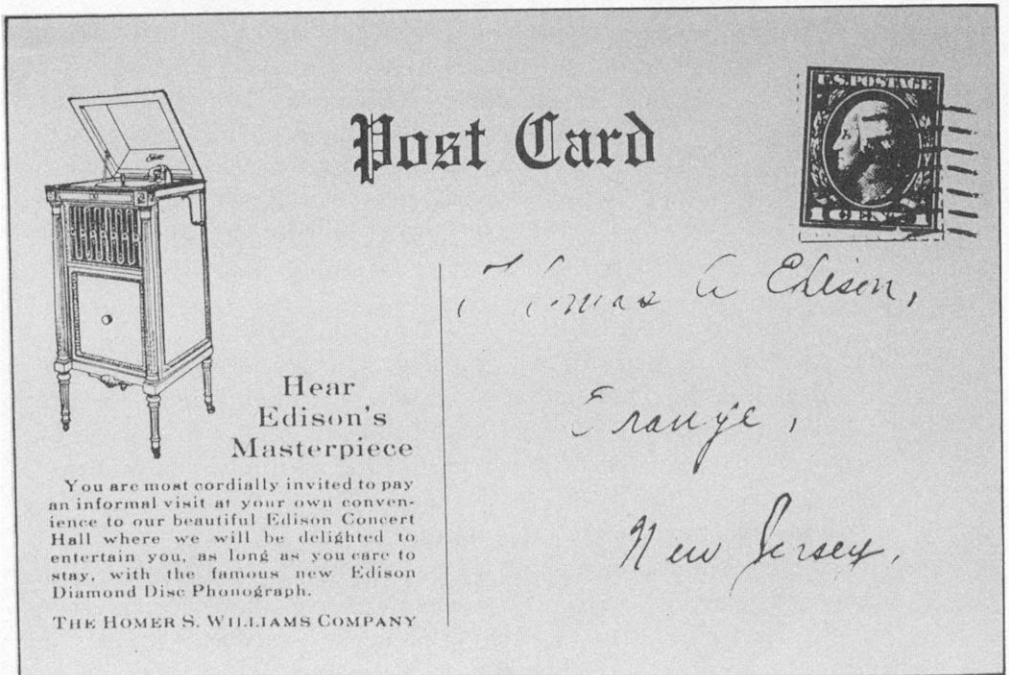 Post Card
U.S. POSTAGE
1 CENT 1
Thomas A Edison,
Orange,
New Jersey.
Hear
Edison's
Masterpiece
You are most cordially invited to pay
an informal visit at your own conven-
ience to our beautiful Edison Concert
Hall where we will be delighted to
entertain you, as long as you care to
stay, with the famous new Edison
Diamond Disc Phonograph.
THE HOMER S. WILLIAMS COMPANY